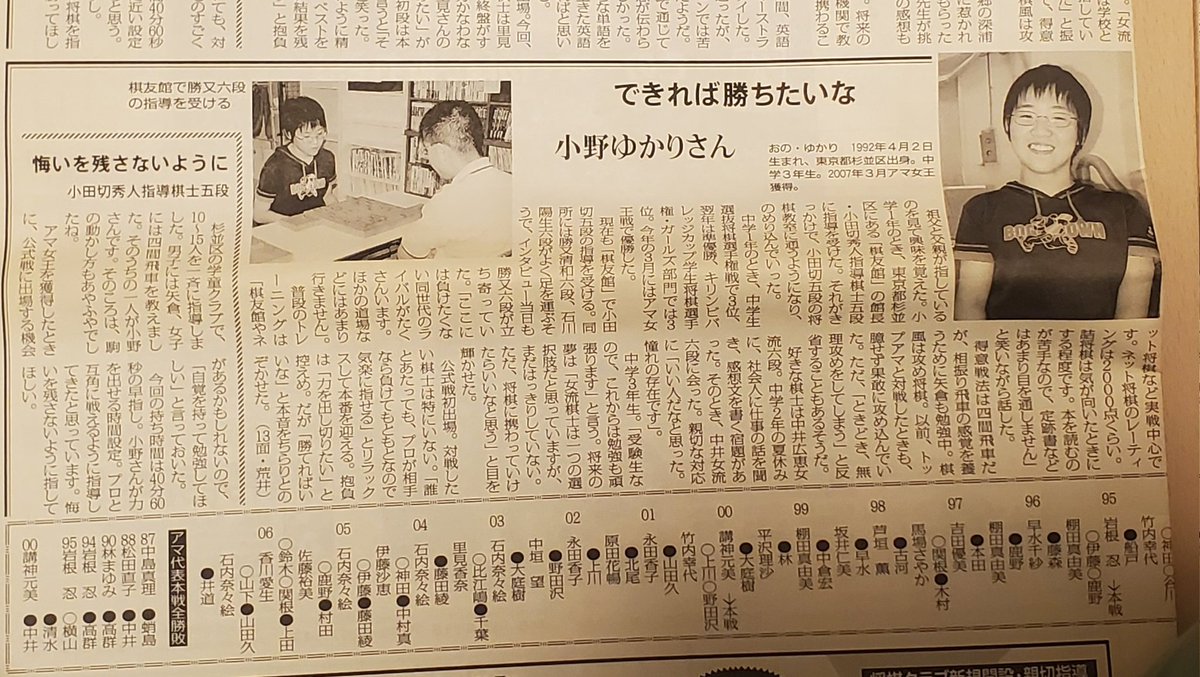 棋友館で勝又六段
の指導を受ける
できれば勝ちたいな
小野ゆかりさん
おの・ゆかり 1992年4月2日
生まれ、東京都杉並区出身。中
学3年生。2007年3月アマ女王
獲得。
祖父と父が指している
のを見て興味を覚えた。小
学1年のとき、東京都杉並
区にある「棋友館」の館長
・小田切秀人指導棋士五段
に指導を受けた。それがき
っかけで、小田切五段の将
棋教室に通うようになり、
のめり込んでいった。
中学1年のとき、中学生
選抜将棋選手権戦で3位、
翌年は準優勝、キリンビバ
レッジカップ学生将棋選手
権・ガールズ部門では3
位。今年の3月にはアマ女
王戦で優勝した。
現在も「棋友館」で小田
切五段の指導を受ける。同
所には勝又清和六段、石川
陽生六段がよく足を運ぶそ
うで、インタビュー当日も
勝又六段が立
ち寄ってい
た。「ここに
は負けたくな
い同世代のラ
イバルがたく
さんいます。
ほかの道場な
どにはあまり
行きません」
普段のトレ
ーニングは
「棋友館やネ
ット将棋など実戦中心で
す。ネット将棋のレーティ
ングは2000点くらい。
詰将棋は気が向いたときに
する程度です。本を読むの
が苦手なので、定跡書など
はあまり目を通しません」
と笑いながら話す。
得意戦法は四間飛車だ
が、相振り飛車の感覚を養
うために矢倉も勉強中。棋
風は攻め将棋。以前、トッ
プアマと対戦したときも、
臆せず果敢に攻め込んでい
った。ただ、「ときどき、無
理攻めをしてしまう」と反
省することもあるそうだ。
好きな棋士は中井広恵女
流六段。中学2年の夏休み
に、社会人に仕事の話を聞
き、感想文を書く宿題があ
った。そのとき、中井女流
六段に会った。親切な対応
に「いい人だなと思った。
憧れの存在です」。
中学3年生。「受験生な
ので、これからは勉強も頑
張ります」と言う。将来の
夢は「女流棋士は一つの選
択肢だと思っていますが、
まだはっきりしていない。
ただ、将棋に携わっていけ
たらいいなと思う」と目を
輝かせた。
公式戦初出場。対戦した
い棋士は特にいない。「誰
とあたっても、プロが相手
なら負けてもともとなので
気楽に指せる」とリラック
スして本番を迎える。抱負
は「力を出し切りたい」と
控えめ。だが「勝てればい
いな」と本音をちらりとの
ぞかせた。(13面・荒井)
悔いを残さないように
小田切秀人指導棋士五段
杉並区の学童クラブで、
10〜15人を一斉に指導しま
した。男子には矢倉、女子
には四間飛車を教えまし
た。そのうちの一人が小野
さんです。そのころは、駒
の動かし方もあやふやでし
たね。
アマ女王を獲得したとき
に、公式戦に出場する機会
があるかもしれないので、
「自覚を持って勉強してほ
しい」と言っておいた。
今回の持ち時間は40分60
秒の早指し。小野さんが力
を出せる時間設定。プロと
互角に戦えるように指導し
てきたと思っています。悔
いを残さないように指して
ほしい。
竹内幸代
●船戸
95
岩根 忍 ※本戦
○伊藤○鹿野
棚田真由美
●藤森
96
早水千紗
●鹿野
棚田真由美
●本田
97
吉田優美
○関根●木村
馬場さやか
●古河
98
芦垣 薫
●早水
坂井仁美
●十倉宏
99
棚田真由美
●林
平沢理沙
●大庭樹
00
講神元美 ※本戦
○上川○野田沢
竹内幸代
●山田久
01
永田香子
●北尾
原田花暢
●上川
02
永田香子
●野田沢
中垣 望
●大庭樹
03
石内奈々絵
●千葉
里見香奈
●藤田綾
04
石内奈々絵
○神田●中村真
伊藤沙恵
○伊藤●藤田綾
05
石内奈々絵
○鹿野●村田
佐藤裕美
○鈴木○関根●上田
06
香川愛生
○山下●山田久
石内奈々絵
●井道
アマ代表本戦全勝敗
87中島真理 ●蛸島
88松田直子 ●中井
90林まゆみ ●高群
94岩根 忍 ●高群
95岩根 忍 ○横山
●清水
00講神元美 ●中井